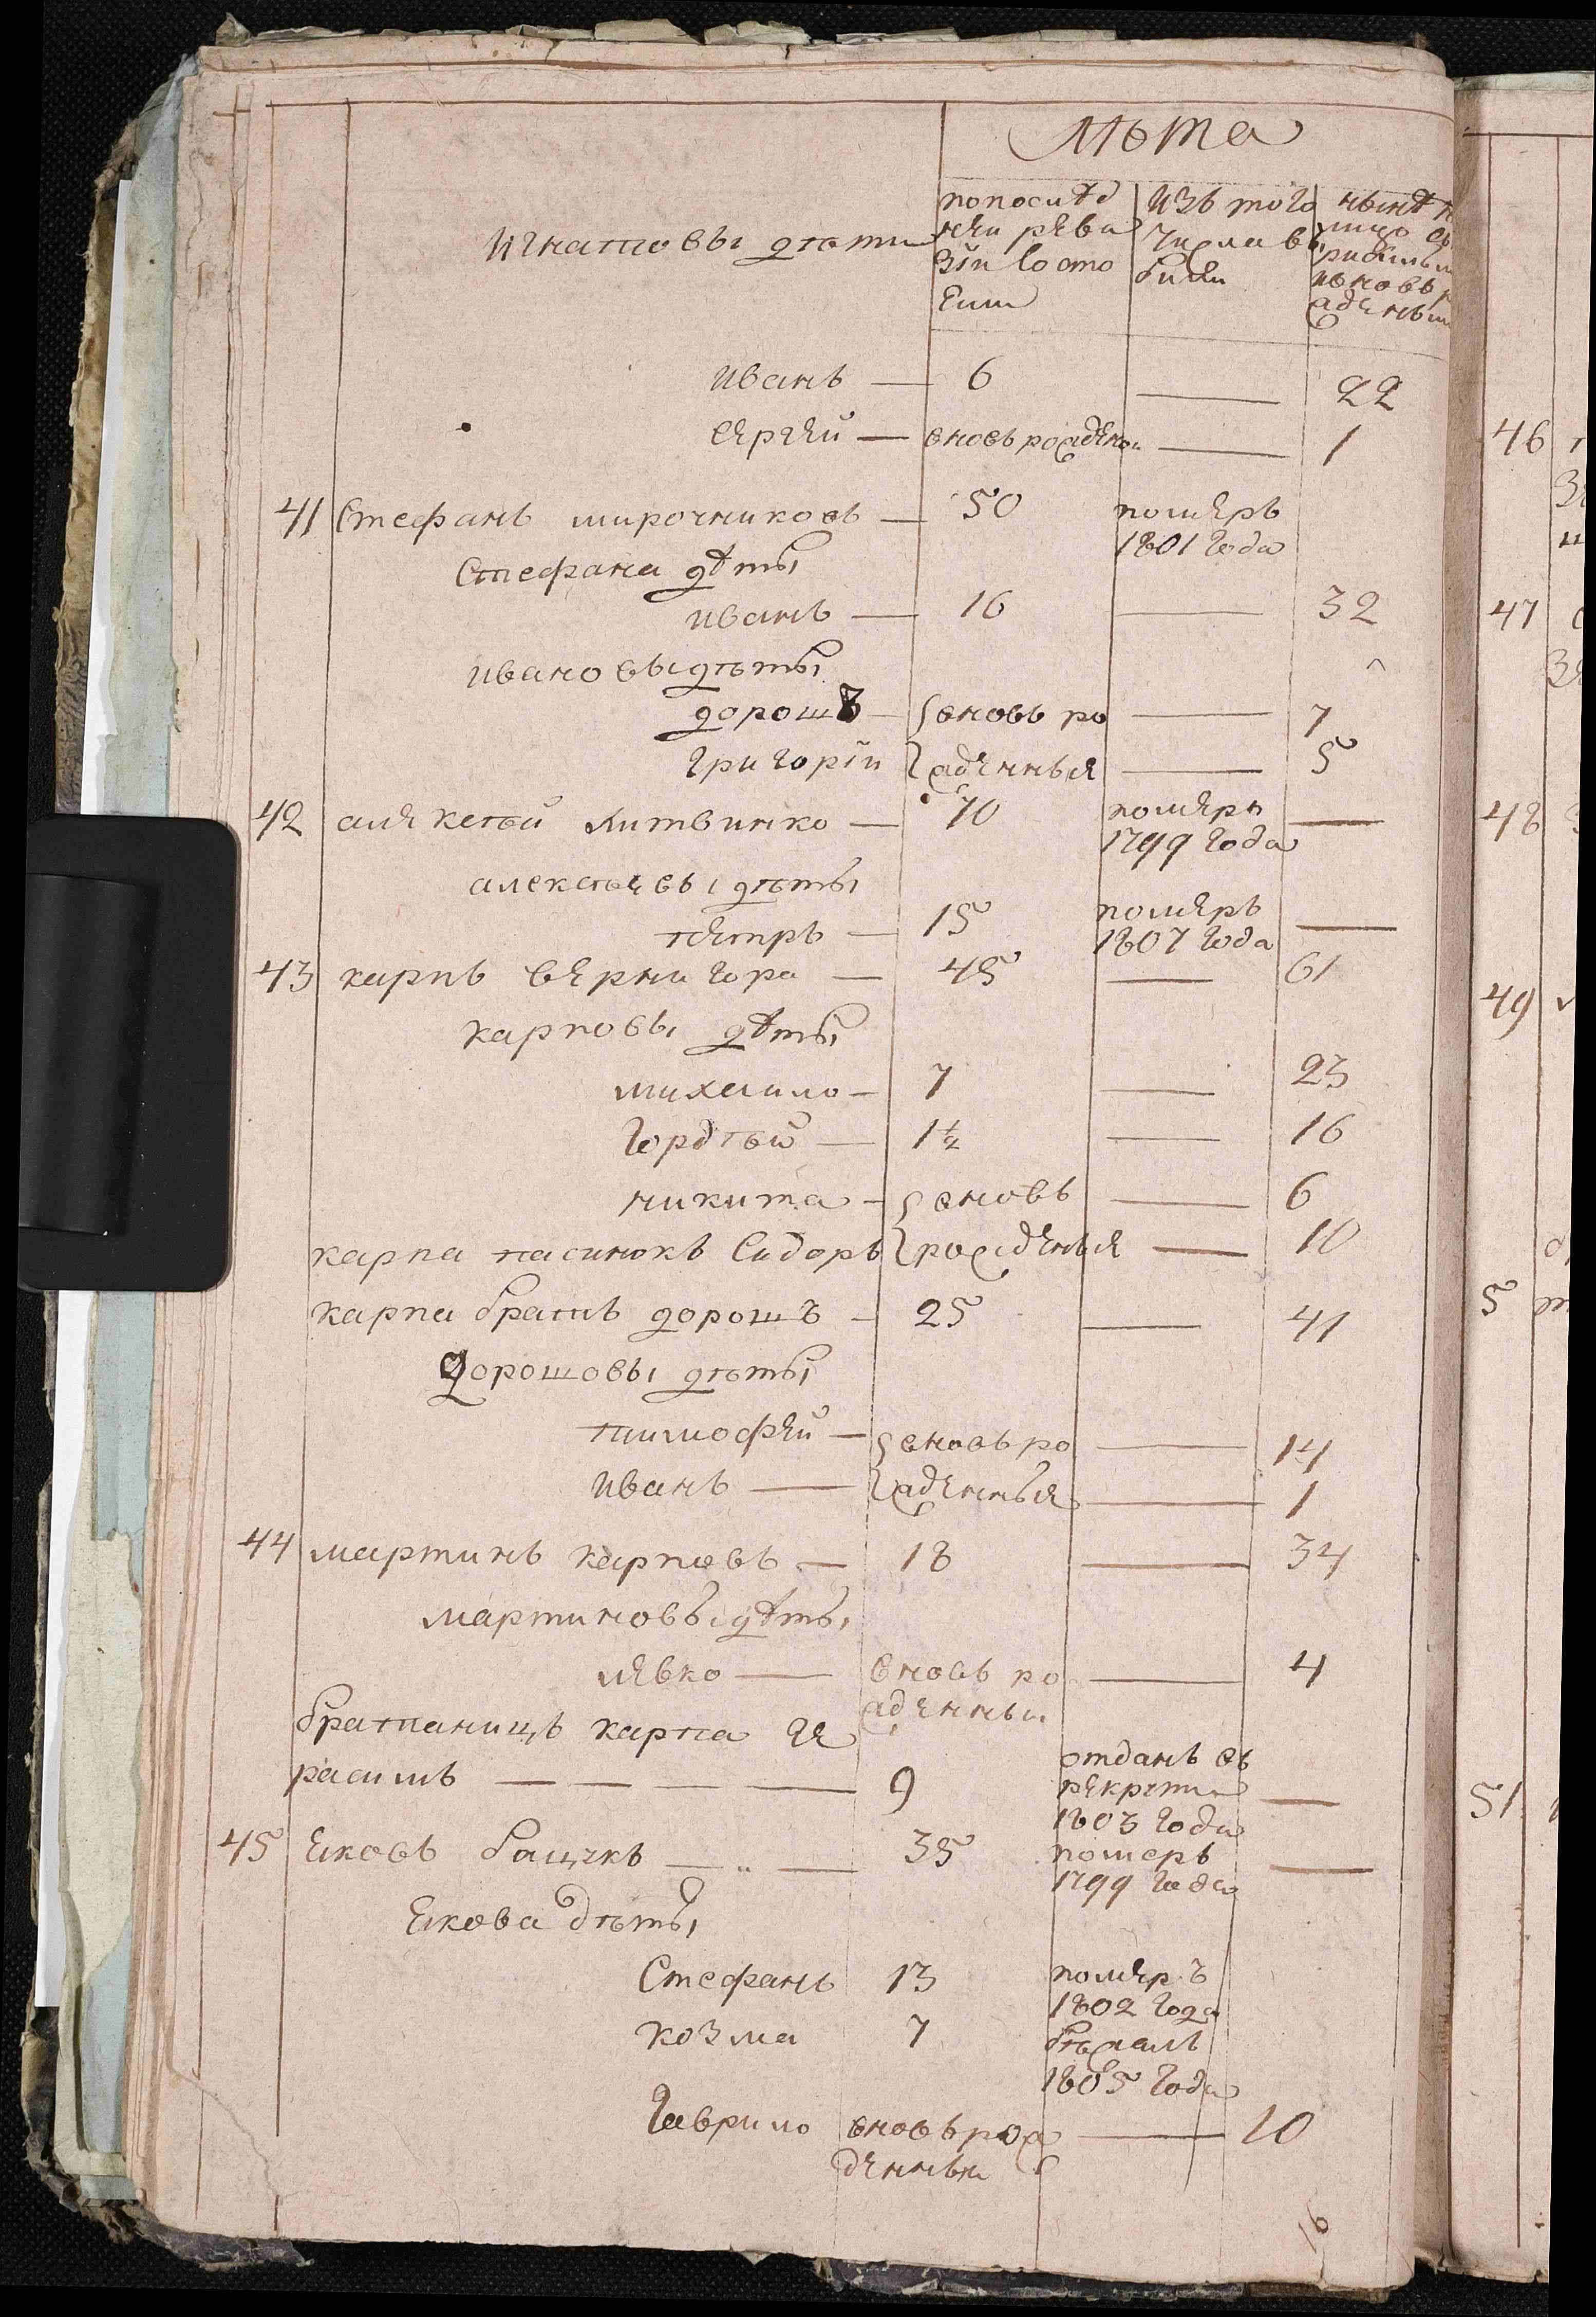 лѣта
по послѣд
ней реви
зіи состо
яли
изъ того
числа в
били
нынѣ
Игнатовы дѣти
иванъ — 6 — 22
сергей — вновь рожденои — 1
41 Стефанъ мирочниковъ — 50 померъ
1801 года
Стефана дѣты
иванъ — 16 — 32
ивановы дѣты
дорошъ — вновь ро — 7
григорій жденныя — 5
42 алексѣй литвинко — 70 померъ —
1799 года
алексѣевы дѣты
петръ — 15 померъ —
1807 года
43 карпъ вернигора — 45 — 61
карповы дѣты
михаило — 7 — 23
гордѣй — 1½ — 16
никита — вновь — 6
карпа пасинокъ Сидоръ рожденыя — 10
карпа братъ дорошъ — 25 — 41
дорошовы дѣты
тимофей — вновь ро — 14
иванъ — жденныя — 1
44 мартинъ карповъ — 18 — 34
мартиновы дѣты
левко — вновь ро — 4
жденны
братаницъ карпа ге
расимъ — — — — 9 отданъ въ
рекруты —
1803 года
45 яковъ бацукъ — „ — 35 померъ —
1799 года
якова дѣты
Стефанъ 13 померъ
1802 года
козма 7 бѣжалъ
1805 года
гаврило вновь рож — 10
денны
46
47
48
49
5
51
16